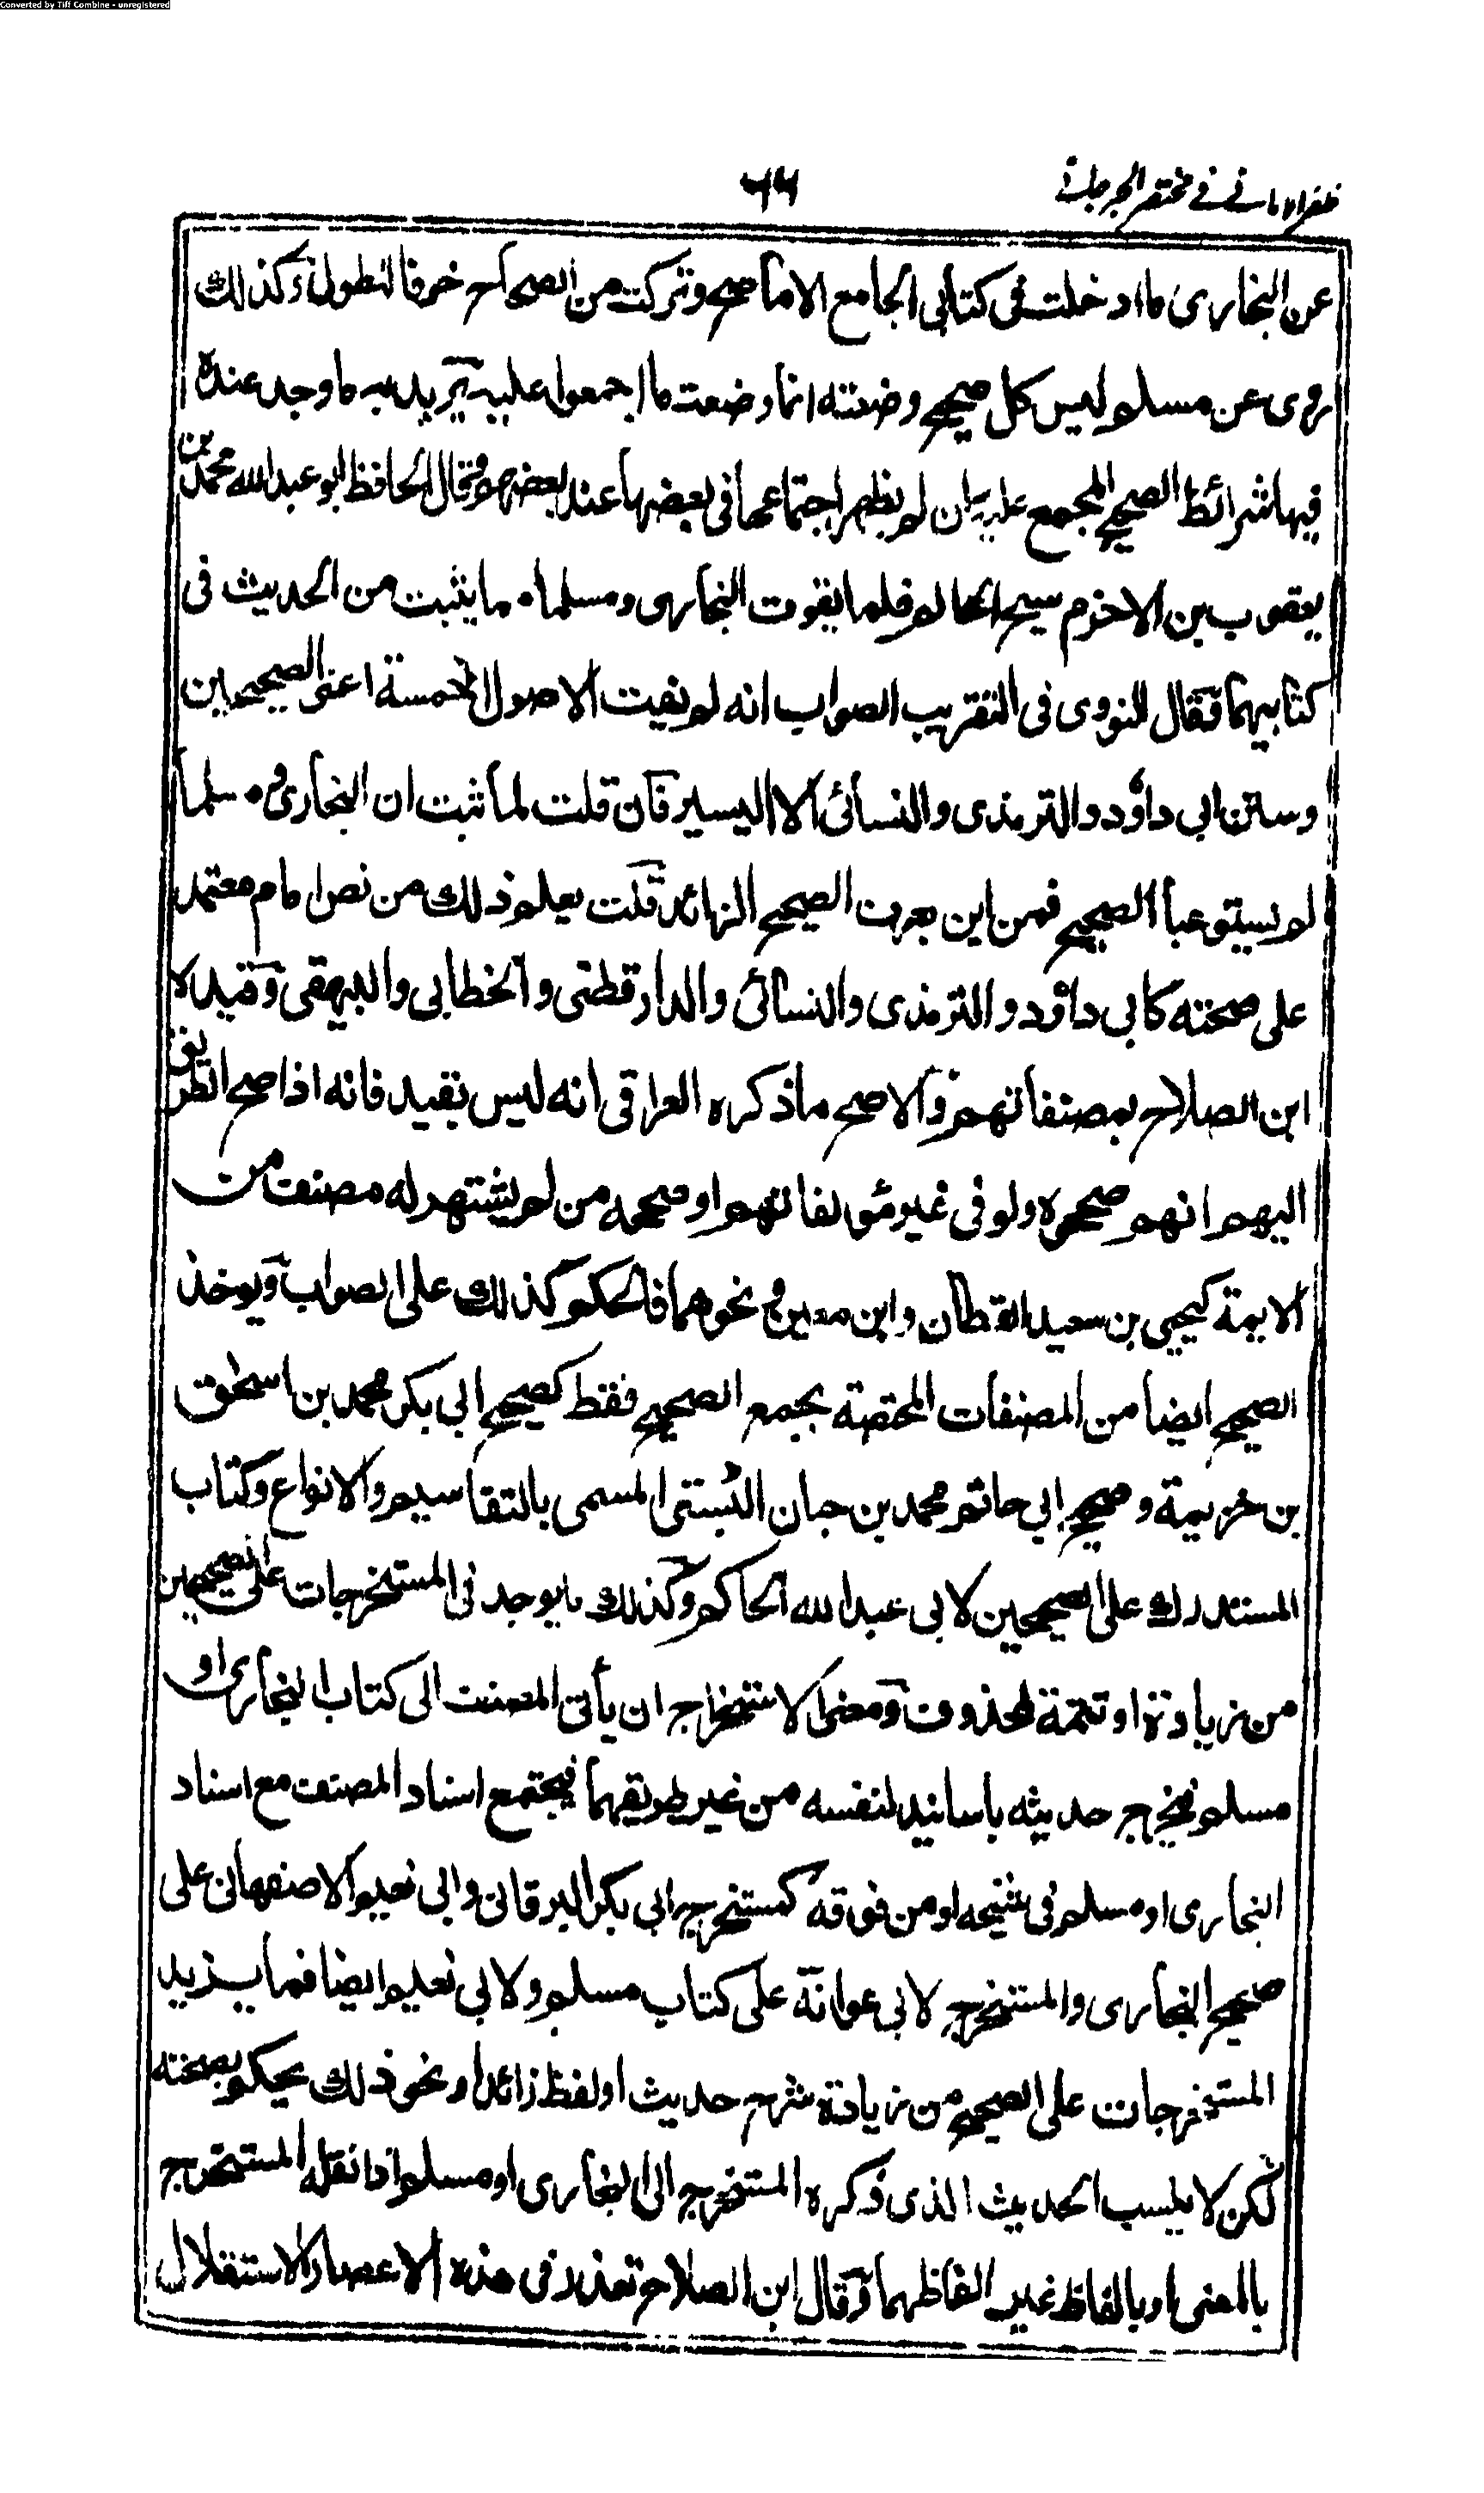 Converted by Tiff Combine - unregistered
ظفر الاماني في مختصر الجرجاني
٦٦
عن البخارى ما ادخلت فى كتابى الجامع الا ما صح وتركت من الصحاح خوفا لتطول وكذلك
روى عن مسلم ليس كل صحيح وضعته انما وضعت ما اجمعوا عليه يريد به ما وجد عنده
فيها شرائط الصحيح المجمع عليه وان لم يظهر اجتماعها فى بعضها عند بعضهم وقال الحافظ ابو عبد الله محمد بن
يعقوب بن الاخزم شيخ الحاكم قلما يفوت البخارى ومسلما ما يثبت من الحديث فى
كتابيهما فقال النووى فى التقريب الصواب انه لم يفت الاصول الخمسة اعنى الصحيحين
وسنن ابى داؤد والترمذى والنسائى الا اليسير فان قلت لما ثبت ان البخارى ومسلما
لم يستوعبا الصحيح فمن اين يعرف الصحيح الزائد قلت يعلم ذلك من نص امام معتمد
على صحته كابى داؤد والترمذى والنسائى والدارقطنى والخطابى والبيهقى وقيده
ابن الصلاح بمصنفاتهم والاصح ما ذكره العراقى انه ليس بقيد فانه اذا صح الطريق
اليهم انهم صححوه ولو فى غير مؤلفاتهم او صححه من لم يشتهر له مصنف من
الايمة كيحيى بن سعيد القطان وابن معين ونحوهما فالحكم كذلك على الصواب ويوخذ
الصحيح ايضا من المصنفات المختصة بجمع الصحيح فقط كصحيح ابى بكر محمد بن اسحق
بن خزيمة وصحيح ابي حاتم محمد بن حبان البُستى المسمى بالتقاسيم والانواع وكتاب
المستدرك على الصحيحين لابى عبد الله الحاكم وكذلك ما يوجد فى المستخرجات على الصحيحين
من زيادة او تتمة لمحذوف ومعنى الاستخراج ان يأتى المصنف الى كتاب البخارى او
مسلم فيخرج حديثه باسانيد لنفسه من غير طريقهما فيجتمع اسناد المصنف مع اسناد
البخارى او مسلم فى شيخه او من فوقه كمستخرج ابى بكر البرقانى وابى نعيم الاصفهانى على
صحيح البخارى والمستخرج لابى عوانة على كتاب مسلم ولابى نعيم ايضا فما يزيد
المستخرجات على الصحيح من زيادة شرح حديث او لفظ زائد او نحو ذلك يحكم بصحته
لكن لا ينسب الحديث الذى ذكره المستخرج الى البخارى او مسلم اذا نقله المستخرج
بالمعنى او بالفاظ غير الفاظهما وقال ابن الصلاح تعذر فى هذه الاعصار الاستقلال